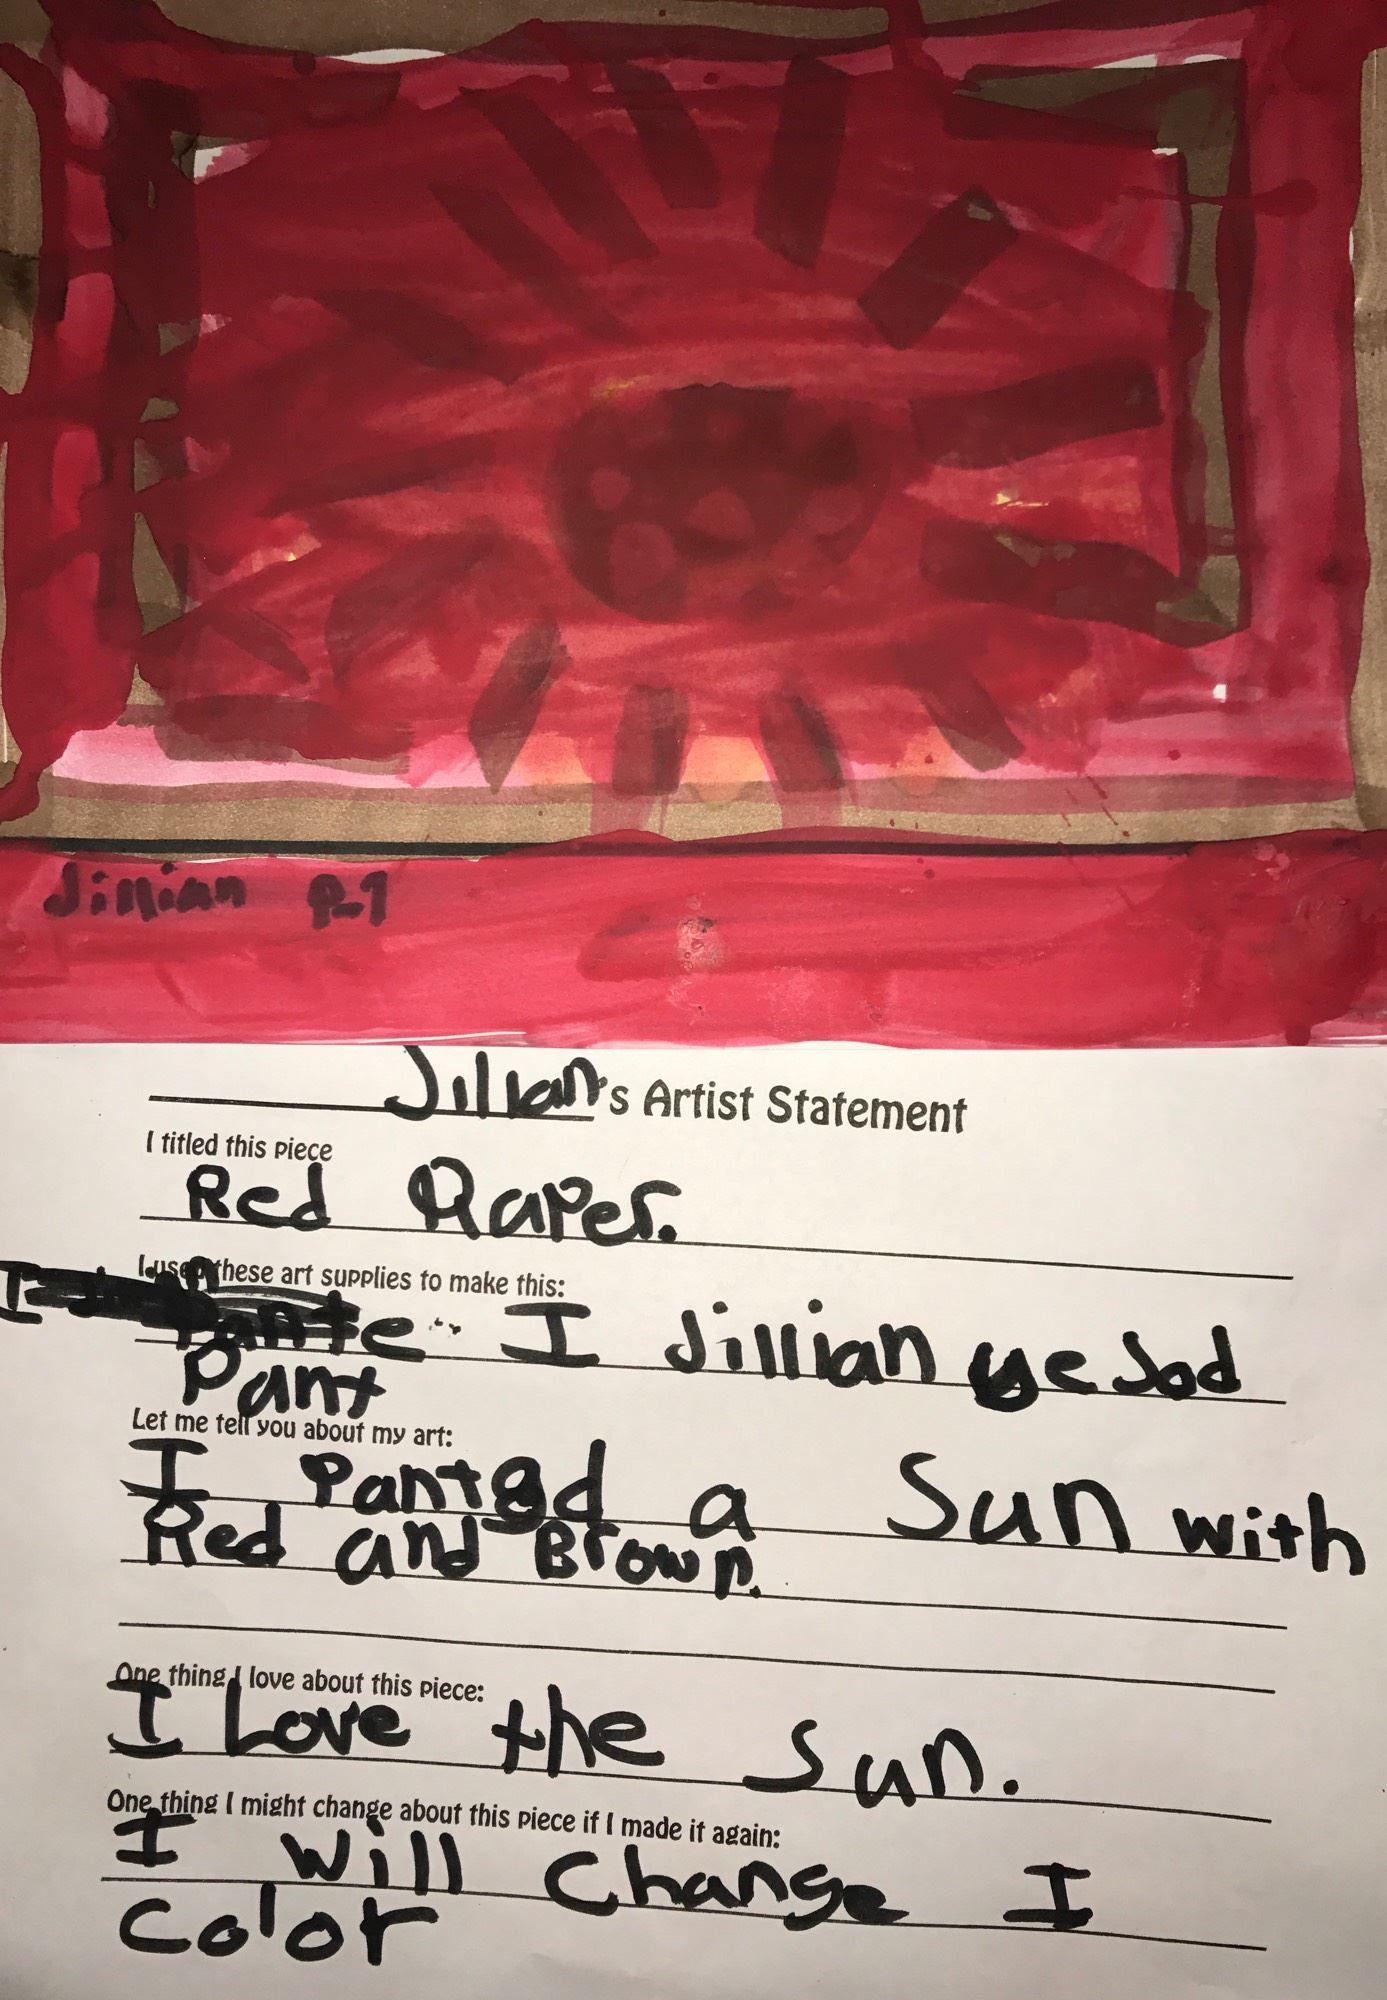 Jillian P-1
Jillian's Artist Statement
I titled this piece
Red Raper.
I used these art supplies to make this:
I Jillian yesod
Pant
Let me tell you about my art:
I Panted a Sun with
Red and Brown.
One thing I love about this piece:
I Love the Sun.
One thing I might change about this piece if I made it again:
I will change I
Color